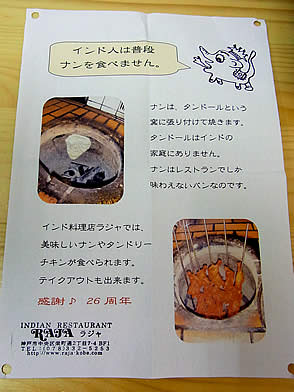 インド人は普段
ナンを食べません。
ナンは、タンドールという
窯に張り付けて焼きます。
タンドールはインドの
家庭にありません。
ナンはレストランでしか
味わえないパンなのです。
インド料理店ラジャでは、
美味しいナンやタンドリー
チキンが食べられます。
テイクアウトも出来ます。
感謝♪ 26周年
INDIAN RESTAURANT
RAJA ラジャ
神戸市中央区栄町通2丁目7-4 BF1
TEL:(078)332-5253
http://www.raja-kobe.com